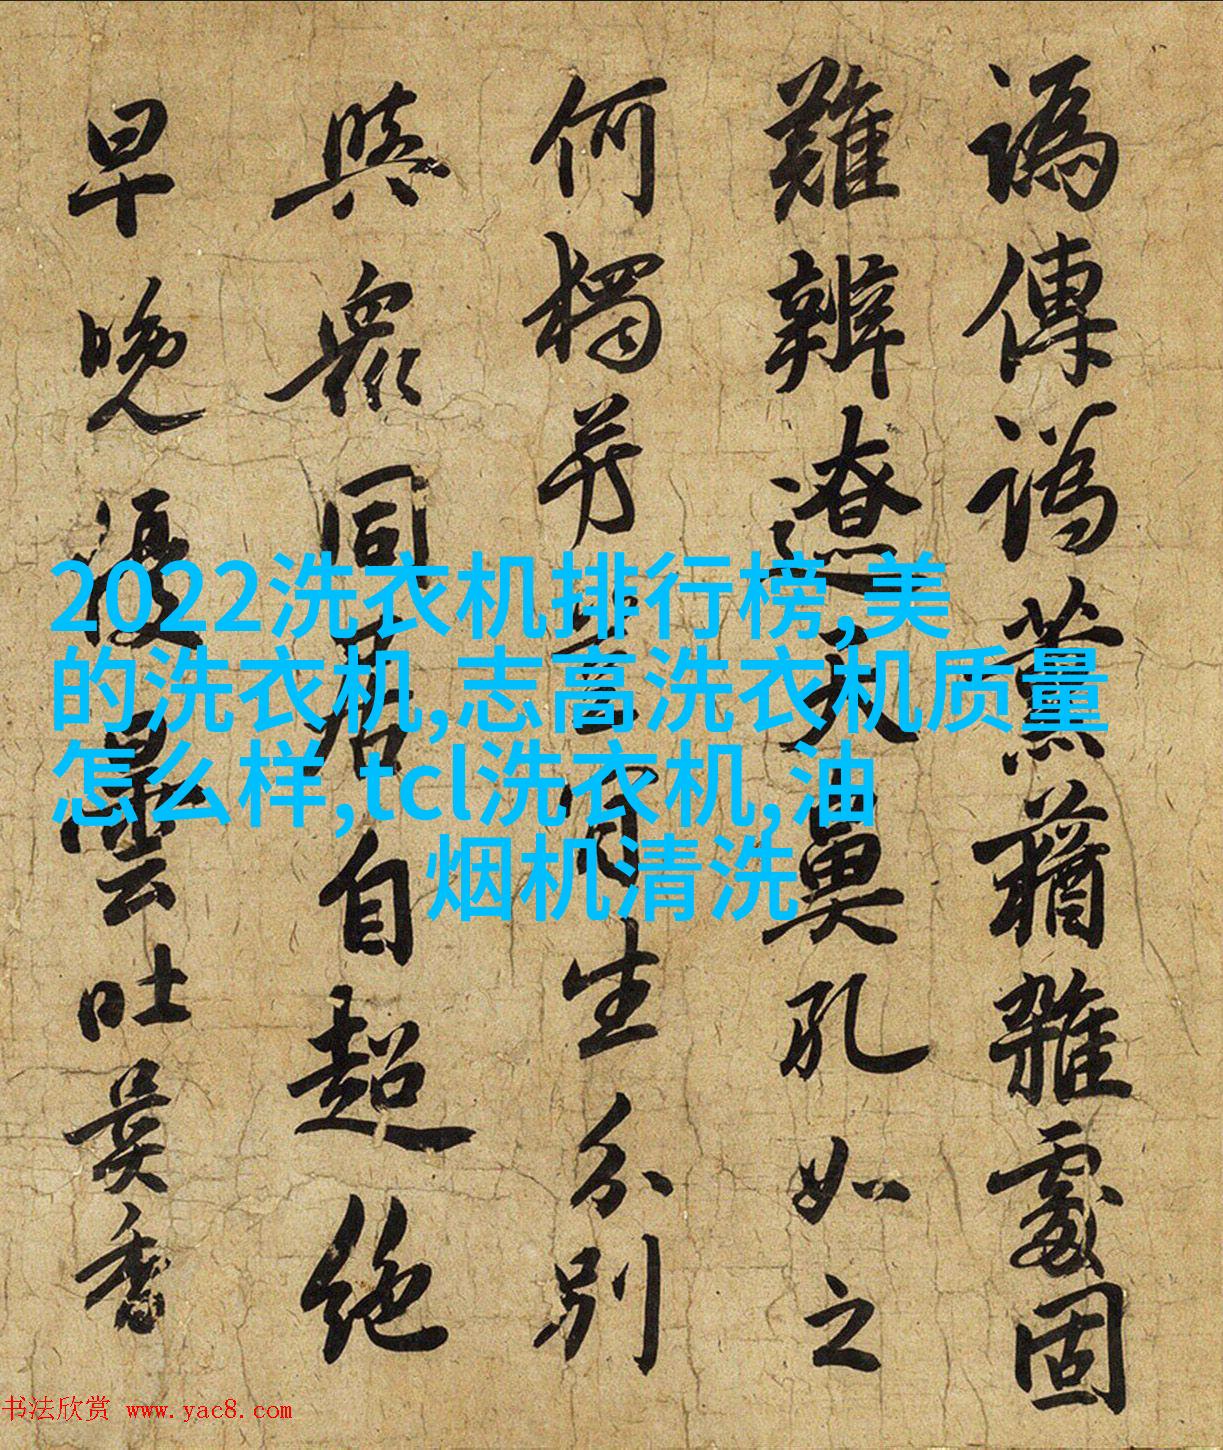 譌傳譌薰蕕雜處固
難辨遼天鼻孔如之
何獨生分別
與衆同居自超絶
早晚優曇吐異香
2022洗衣机排行榜,美
的洗衣机,志高洗衣机质量
怎么样,tcl洗衣机,油
烟机清洗
书法欣赏 www.yac8.com